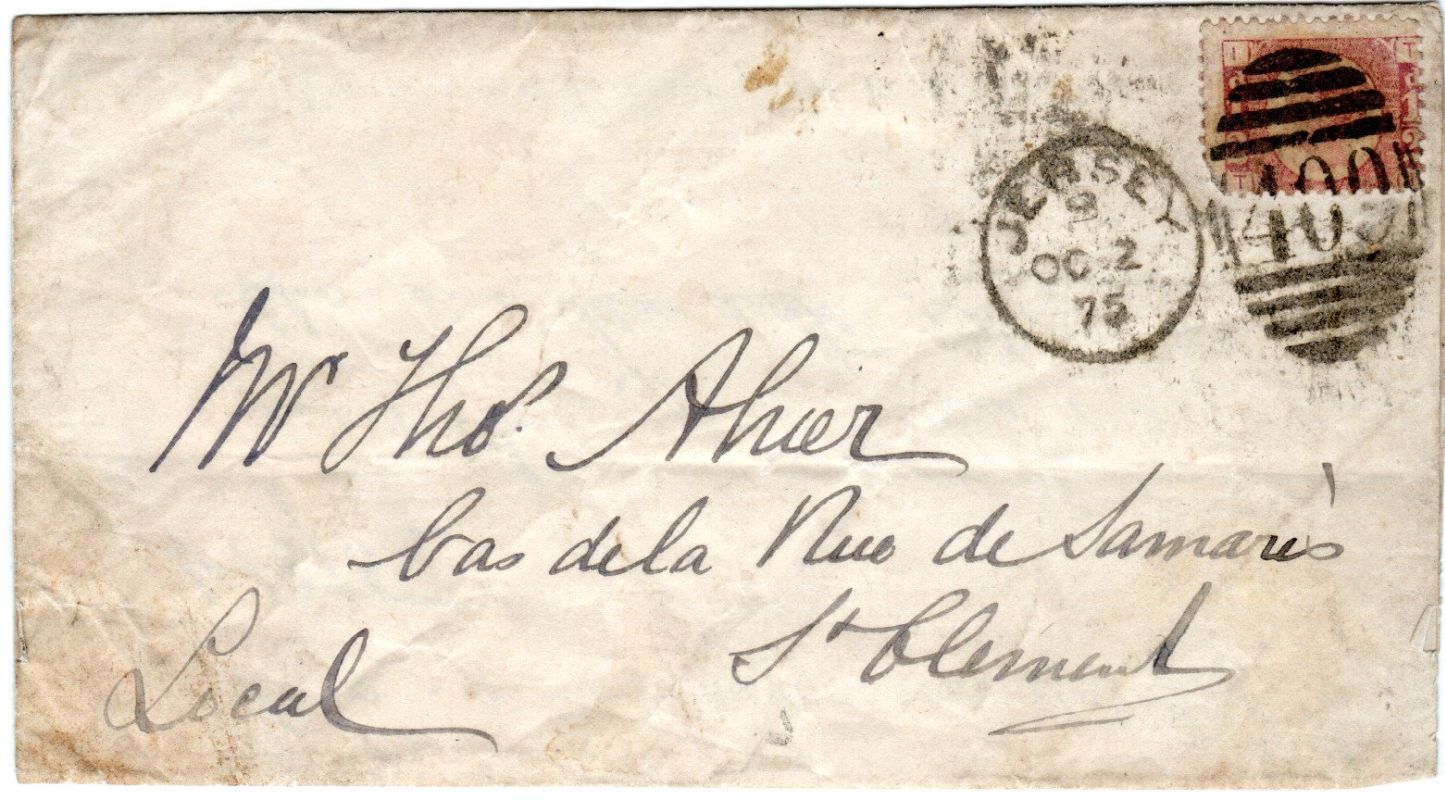 JERSEY
OC 2
75
409
Mr Thos. Ahier
bas de la Rue de Samarès
St Clement
Local